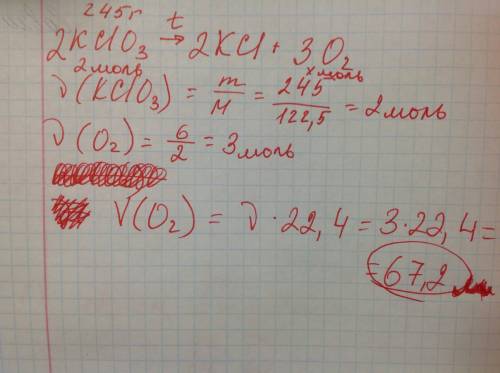 245г
2KClO₃ t→ 2KCl + 3O₂
2моль x моль
ν(KClO₃) = m/M = 245/122,5 = 2моль
ν(O₂) = 6/2 = 3моль
V(O₂) = ν·22,4 = 3·22,4 =
= 67,2